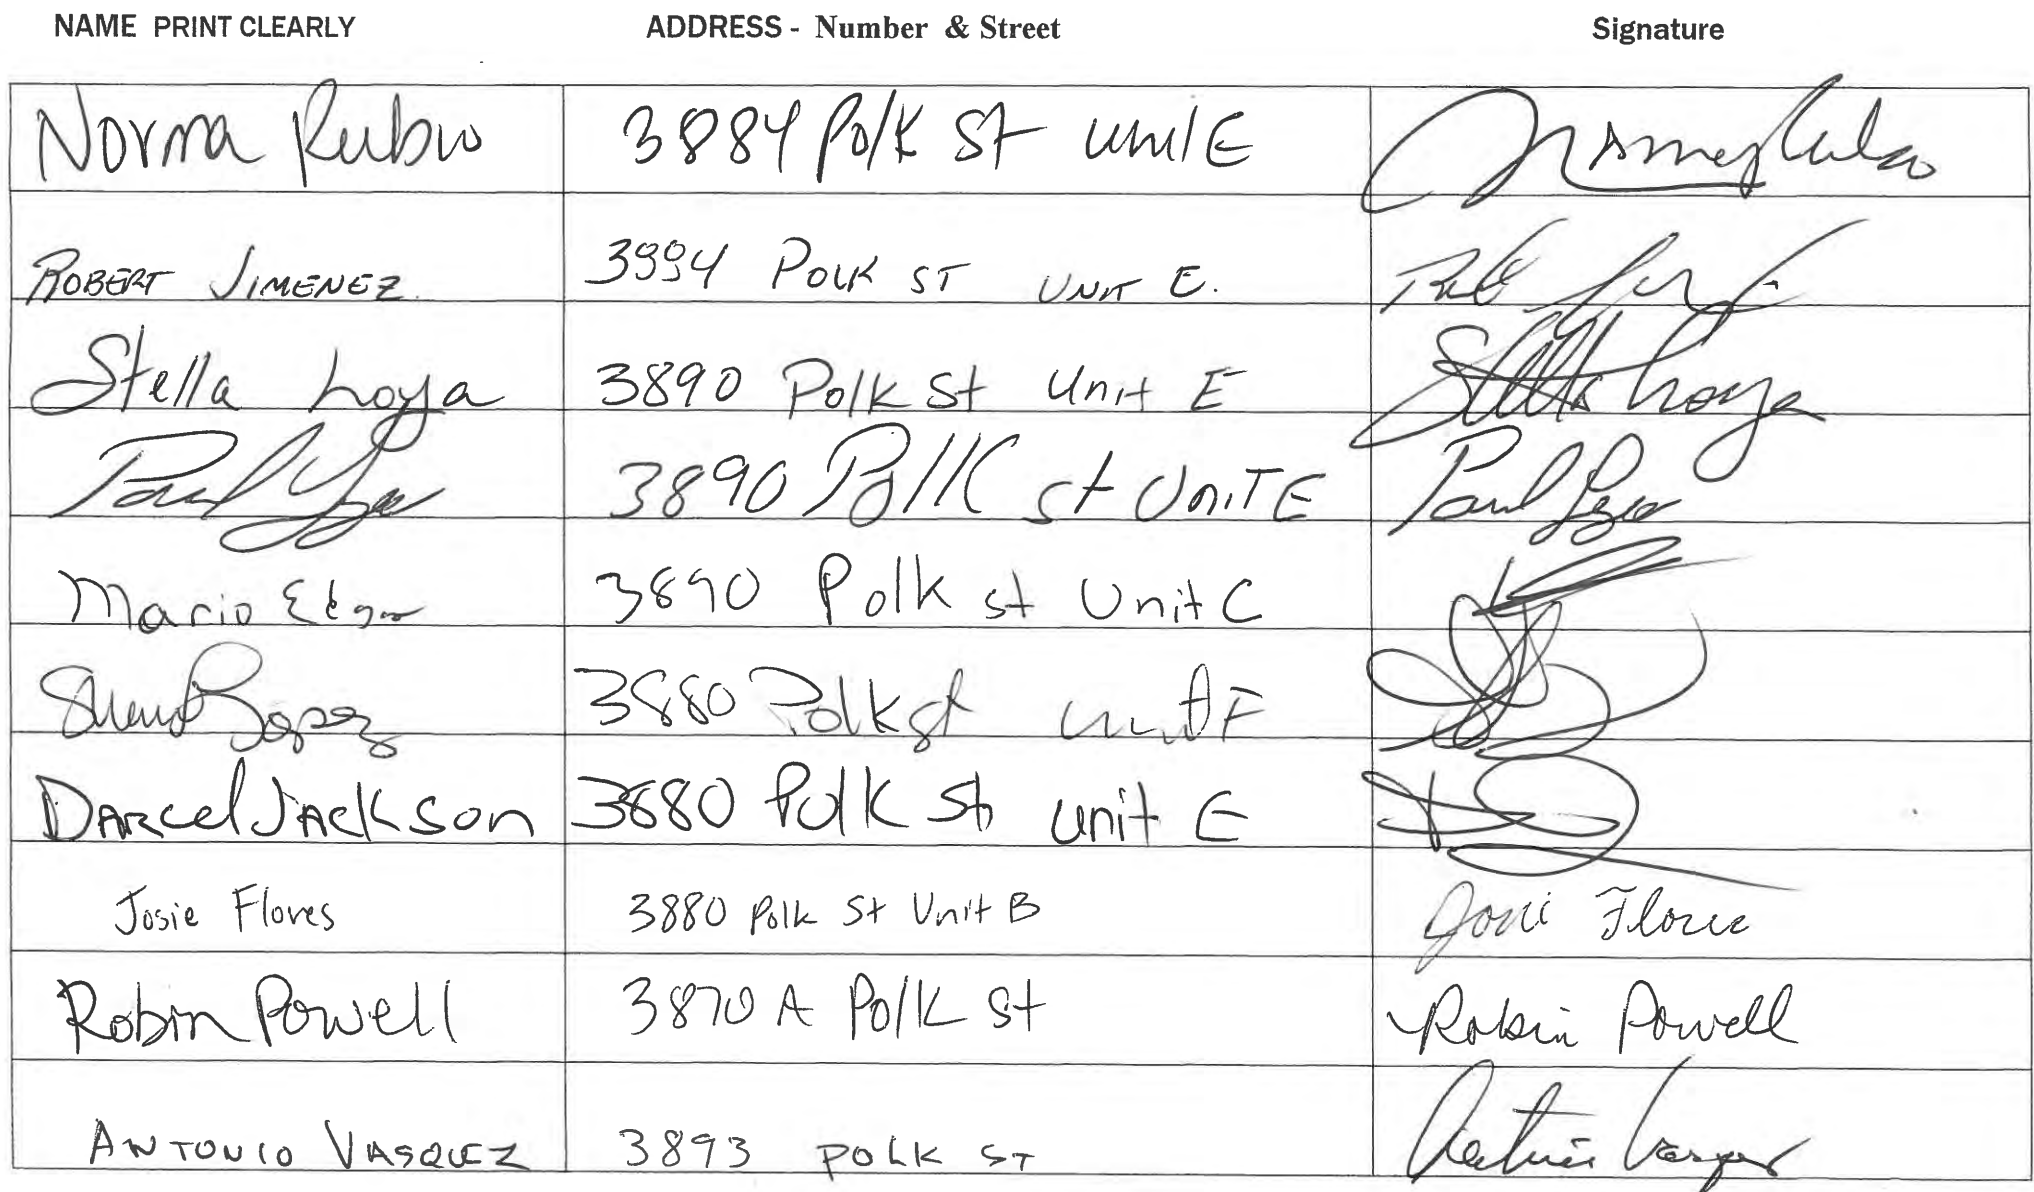 NAME PRINT CLEARLY ADDRESS - Number & Street Signature
Norma Rubio 3884 Polk St unit E Norma Rubio
ROBERT JIMENEZ. 3994 POLK ST UNIT E.
Stella Loya 3890 Polk St Unit E Stella Loya
Paul 3890 Polk st UniT E Paul
Mario 3890 Polk st Unit C
Lopez 3880 Polk st unit F
DARCel JAckson 3880 Polk St unit E
Josie Flores 3880 Polk St Unit B Josie Flores
Robin Powell 3870 A Polk St Robin Powell
ANTONIO VASQUEZ 3893 POLK ST